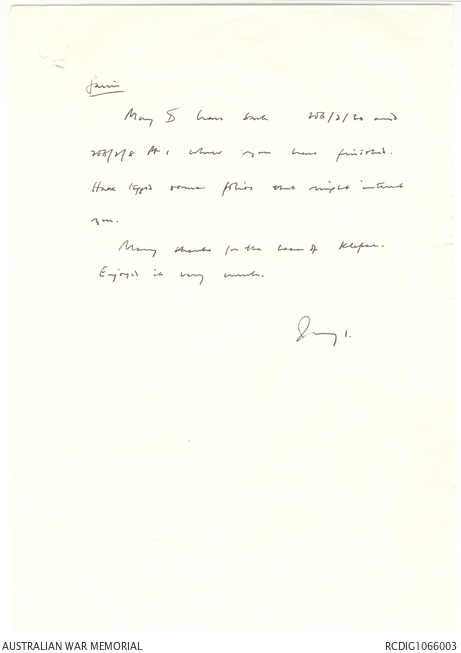 May I have back 203/2/30 and
203/2/8 Pt 1 when you have finished.
Have some folios that might interest
you.
Many thanks for the loan of
Enjoyed it very much.
AUSTRALIAN WAR MEMORIAL
RCDIG1066003